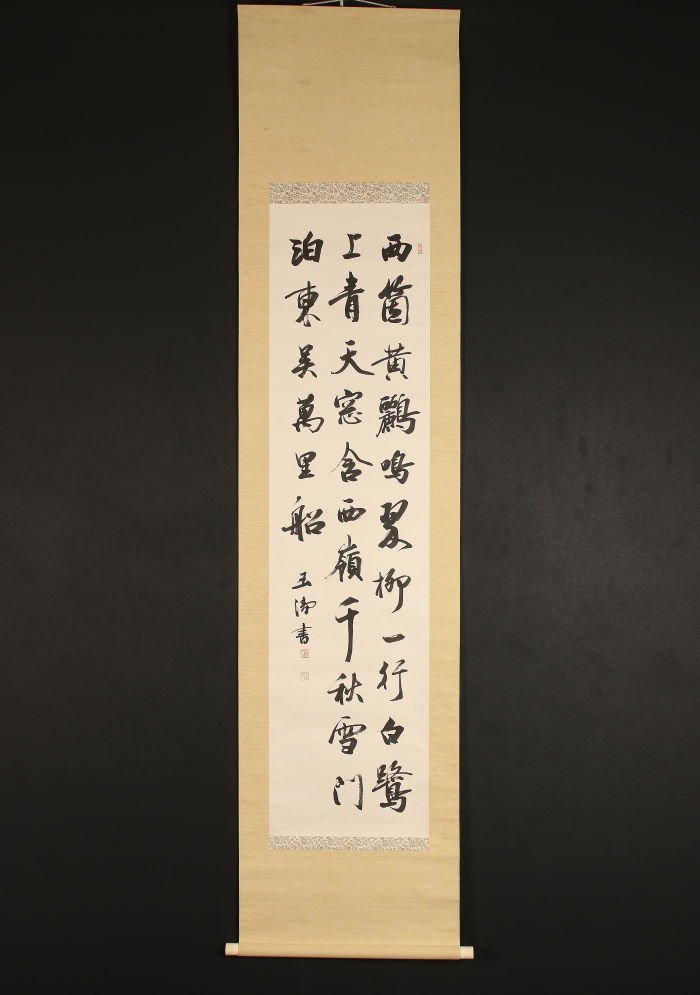 两箇黄鸝鳴翠柳一行白鷺
上青天窓含西嶺千秋雪門
泊東吴萬里船
玉 書